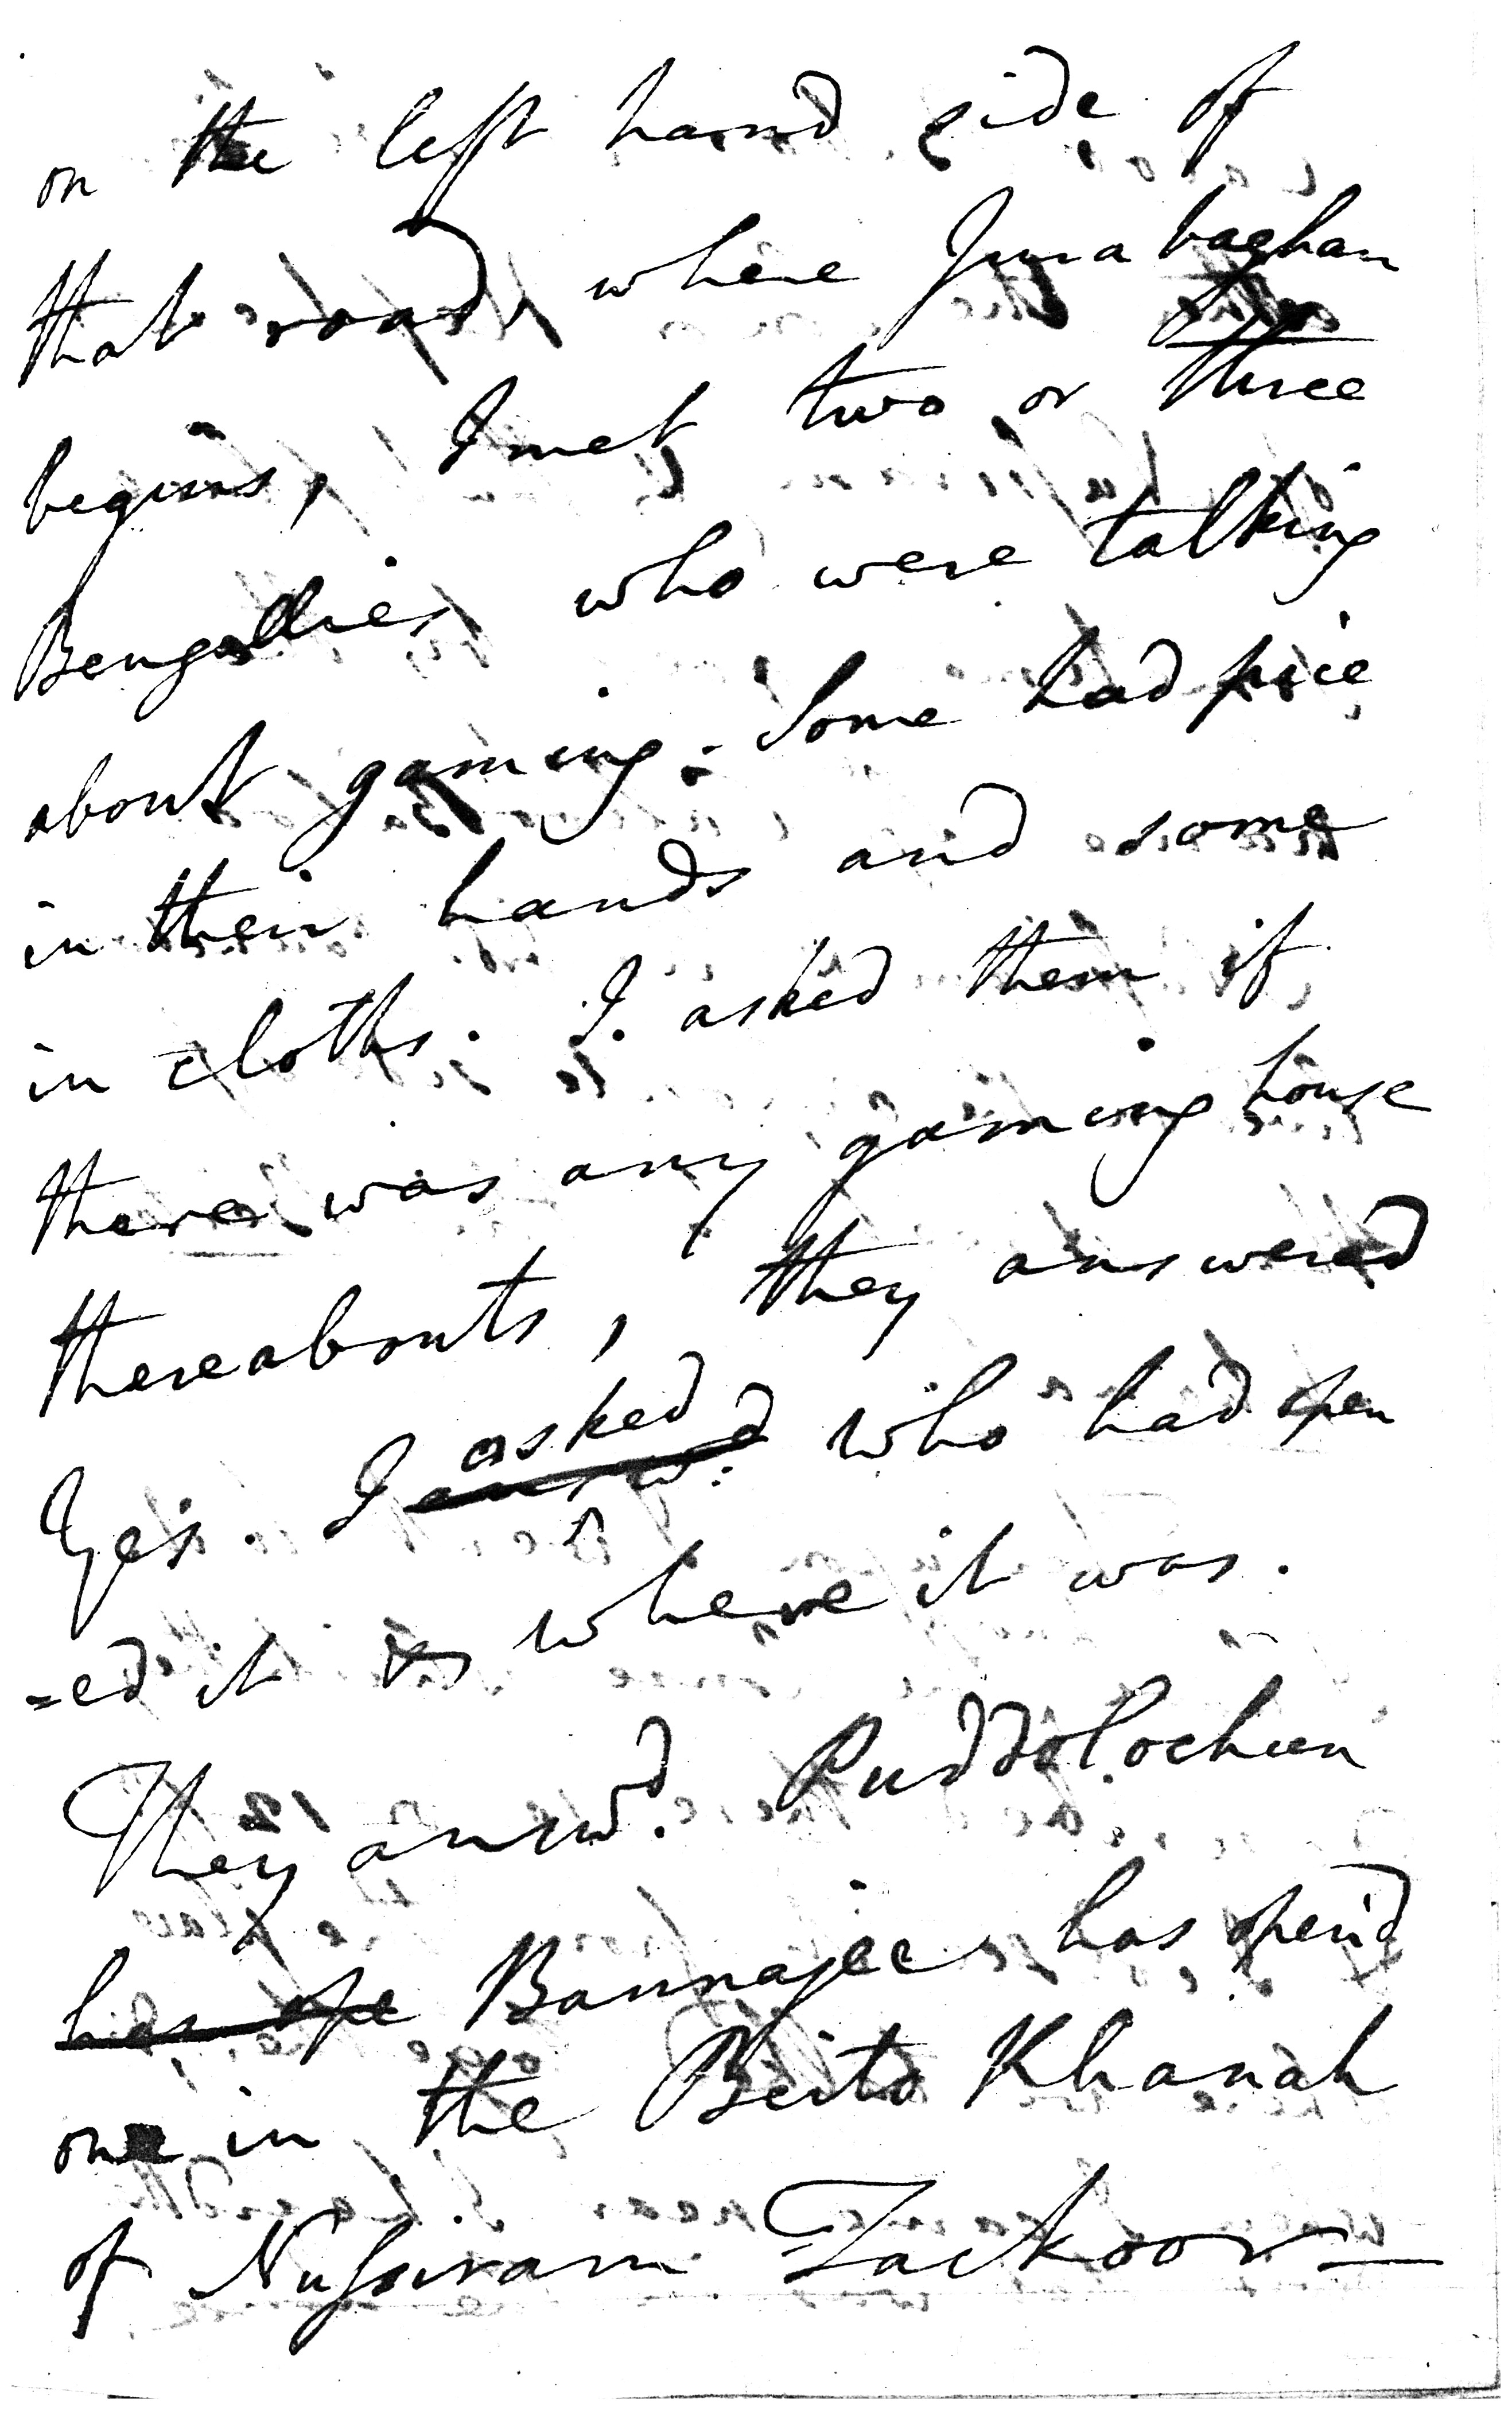 on the left hand side of
that road, where Jura baghan
begins, I met two or three
Bengallies who were talking
about gaming. Some had pice
in their hands and some
in cloths. I. asked them if
there was any gaming house
thereabouts, they answered
Yes. I answd. asked who had open
=ed it & where it was.
They answd. Puddolochun
has ope Bannajee has open'd
one in the Beita Khanah
of Nussiram Tackoor